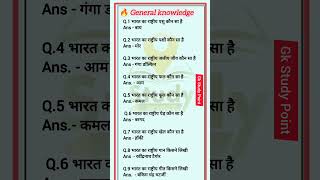 General knowledge
Q.1 भारत का राष्ट्रीय पशु कौन सा है
Ans - बाघ
Q.2 भारत का राष्ट्रीय पक्षी कौन सा है
Ans - मोर
Q.3 भारत का राष्ट्रीय जलीय जीव कौन सा है
Ans - गंगा डॉल्फिन
Q.4 भारत का राष्ट्रीय फल कौन सा है
Ans. - आम
Q.5 भारत का राष्ट्रीय फूल कौन सा है
Ans - कमल
Q.6 भारत का राष्ट्रीय पेड़ कौन सा है
Ans - बरगद
Q.7 भारत का राष्ट्रीय खेल कौन सा है
Ans - हॉकी
Q.8 भारत का राष्ट्रीय गान किसने लिखी
Ans - रवींद्रनाथ टैगोर
Q.9 भारत का राष्ट्रीय गीत किसने लिखी
Ans - बंकिम चंद्र चटर्जी
Gk Study Point
Ans - गंगा
Q.4 भारत
Ans. - आम
Q.5 भारत
Ans.- कमल
Q.6 भारत
सा है
सा है
सा है